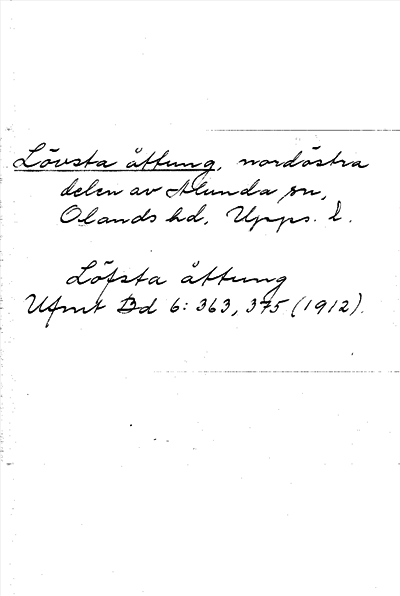 Lövsta åttung, nordöstra
delen av Alunda sn,
Olands hd, Upps. l.
Löfsta åttung
Ufmt Bd 6: 363, 375 (1912).